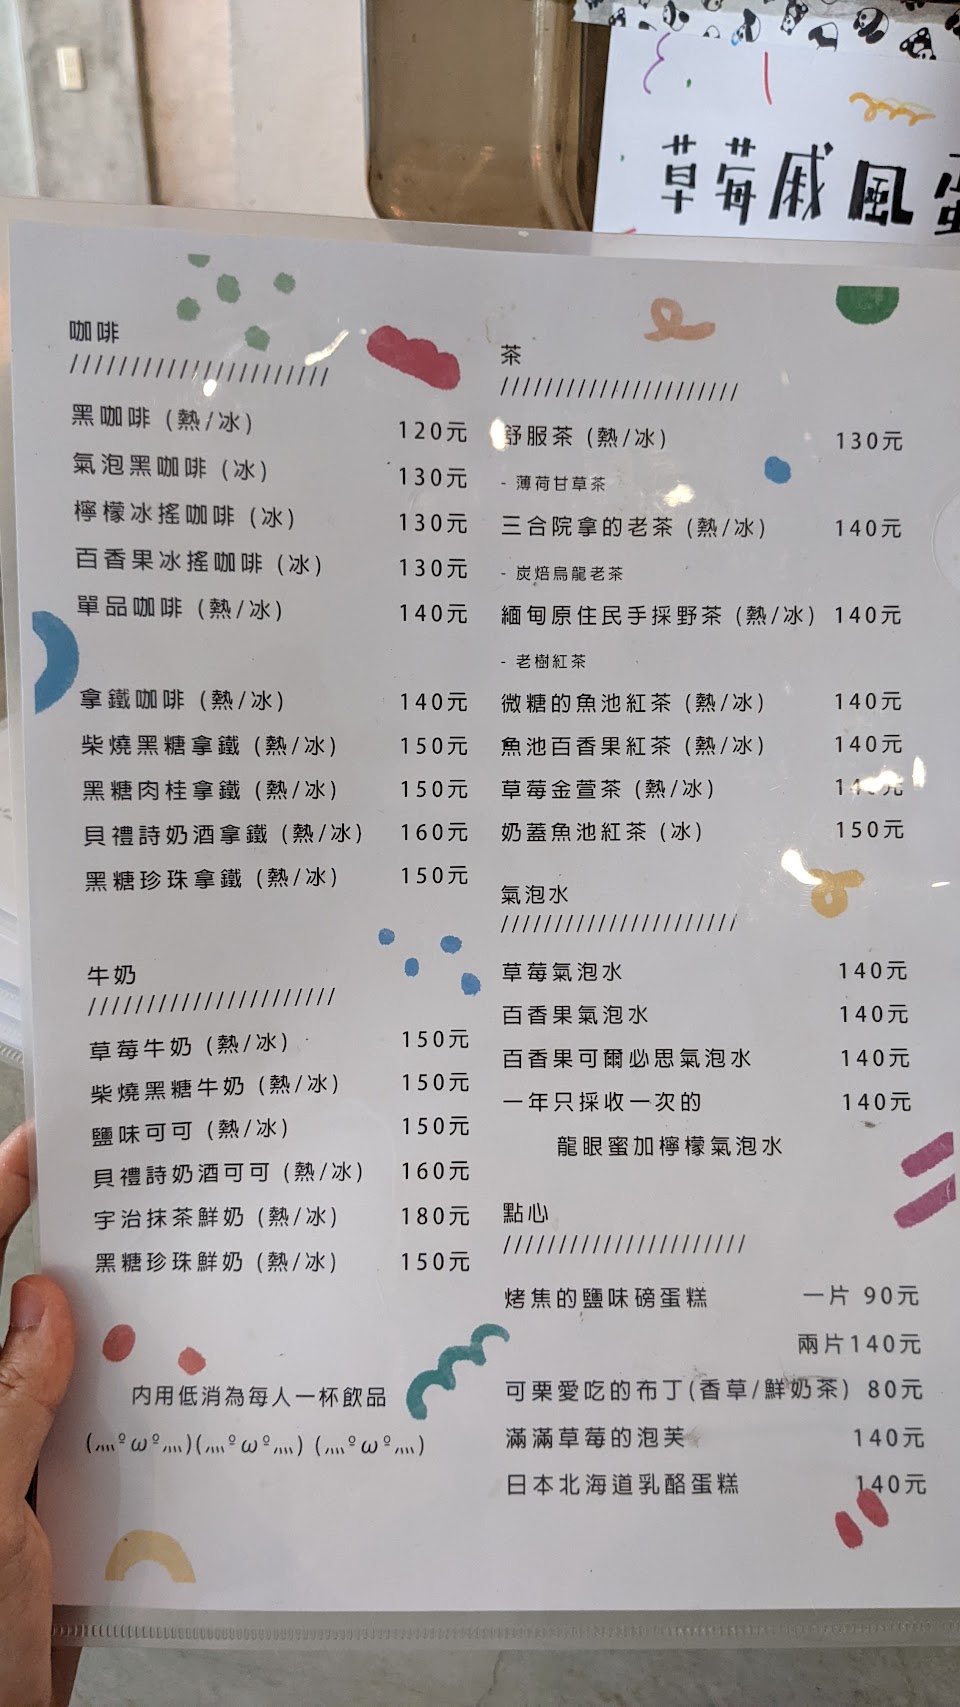 草莓戚風蛋
咖啡
////////////////////////
黑咖啡 (熱/冰) 120元
氣泡黑咖啡 (冰) 130元
檸檬冰搖咖啡 (冰) 130元
百香果冰搖咖啡 (冰) 130元
單品咖啡 (熱/冰) 140元
拿鐵咖啡 (熱/冰) 140元
柴燒黑糖拿鐵 (熱/冰) 150元
黑糖肉桂拿鐵 (熱/冰) 150元
貝禮詩奶酒拿鐵 (熱/冰) 160元
黑糖珍珠拿鐵 (熱/冰) 150元
牛奶
///////////////////////
草莓牛奶 (熱/冰) 150元
柴燒黑糖牛奶 (熱/冰) 150元
鹽味可可 (熱/冰) 150元
貝禮詩奶酒可可 (熱/冰) 160元
宇治抹茶鮮奶 (熱/冰) 180元
黑糖珍珠鮮奶 (熱/冰) 150元
內用低消為每人一杯飲品
(灬ºωº灬)(灬ºωº灬) (灬ºωº灬)
茶
//////////////////////
舒服茶 (熱/冰) 130元
- 薄荷甘草茶
三合院拿的老茶 (熱/冰) 140元
- 炭焙烏龍老茶
緬甸原住民手採野茶 (熱/冰) 140元
- 老樹紅茶
微糖的魚池紅茶 (熱/冰) 140元
魚池百香果紅茶 (熱/冰) 140元
草莓金萱茶 (熱/冰) 元
奶蓋魚池紅茶 (冰) 150元
氣泡水
//////////////////////
草莓氣泡水 140元
百香果氣泡水 140元
百香果可爾必思氣泡水 140元
一年只採收一次的 140元
龍眼蜜加檸檬氣泡水
點心
///////////////////////
烤焦的鹽味磅蛋糕 一片 90元
兩片140元
可栗愛吃的布丁(香草/鮮奶茶) 80元
滿滿草莓的泡芙 140元
日本北海道乳酪蛋糕 140元